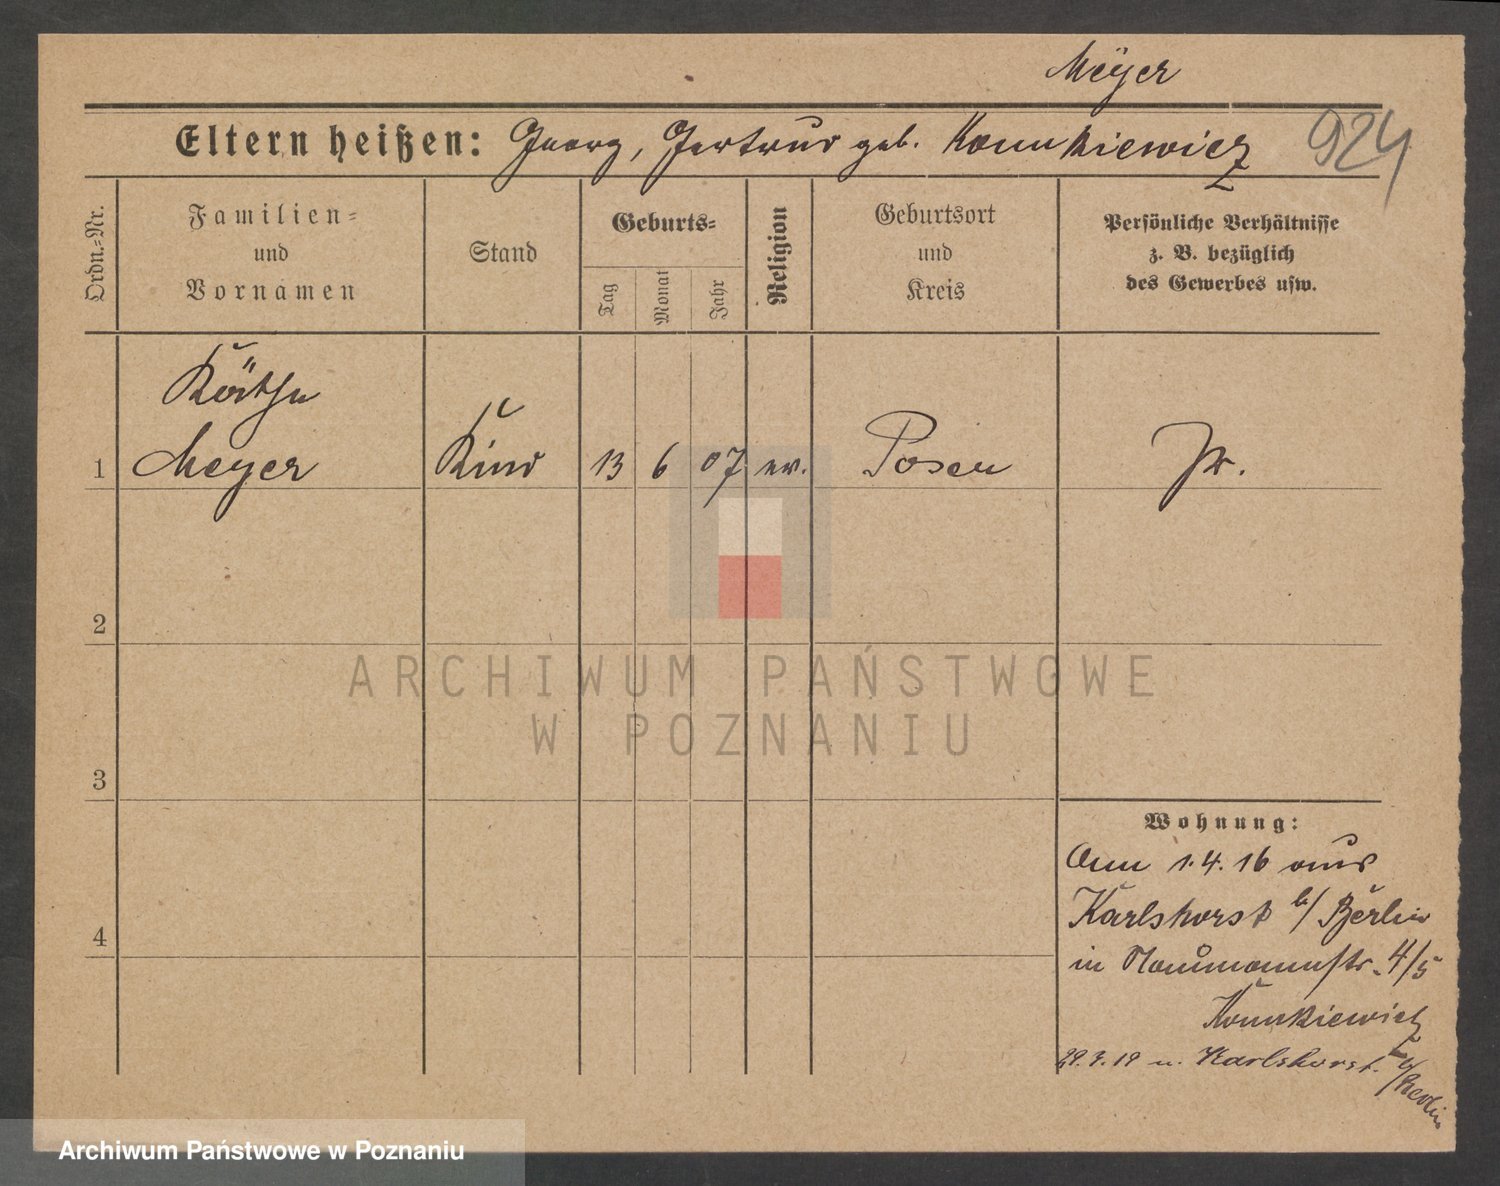 Meÿer
Eltern heißen: Georg, Gertrud geb. Konnkiewicz 924
Ordn.-Nr.
Familien-
und
Vornamen
Stand
Geburts-
Tag
Monat
Jahr
Religion
Geburtsort
und
Kreis
Persönliche Verhältnisse
z. B. bezüglich
des Gewerbes usw.
Käthe
1 Meyer Kind 13 6 07 ev. Posen Pr.
2
3
4
Wohnung:
Am 1.4.16 aus
Karlshorst b/ Berlin
in Naumannstr. 4/5
Konnkiewicz
29.3.19 n. Karlshorst b/Berlin
ARCHIWUM PAŃSTWOWE
W POZNANIU
Archiwum Państwowe w Poznaniu